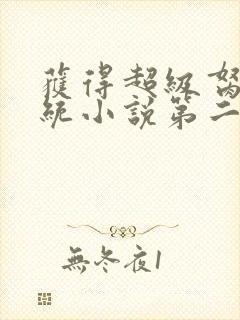 獲得超級
統小說第二
無冬夜1